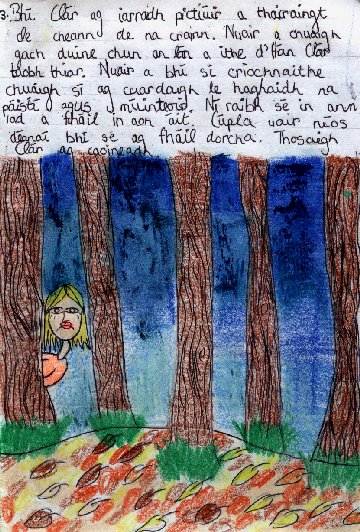 3. Bhí Clár ag iarraidh pictiúir a tharraingt
de cheann de na crainn. Nuair a chuaigh
gach duine chun an lón a ithe d'fhan Clár
taobh thiar. Nuair a bhí sí críochnaithe
chuaigh sí ag cuardaigh le haghaidh na
páistí agus múinteoir. Ní raibh sé in ann
iad a fháil in aon áit. Cúpla uair níos
déanaí bhí sé ag fháil dorcha. Thosaigh
Clár ag caoineadh